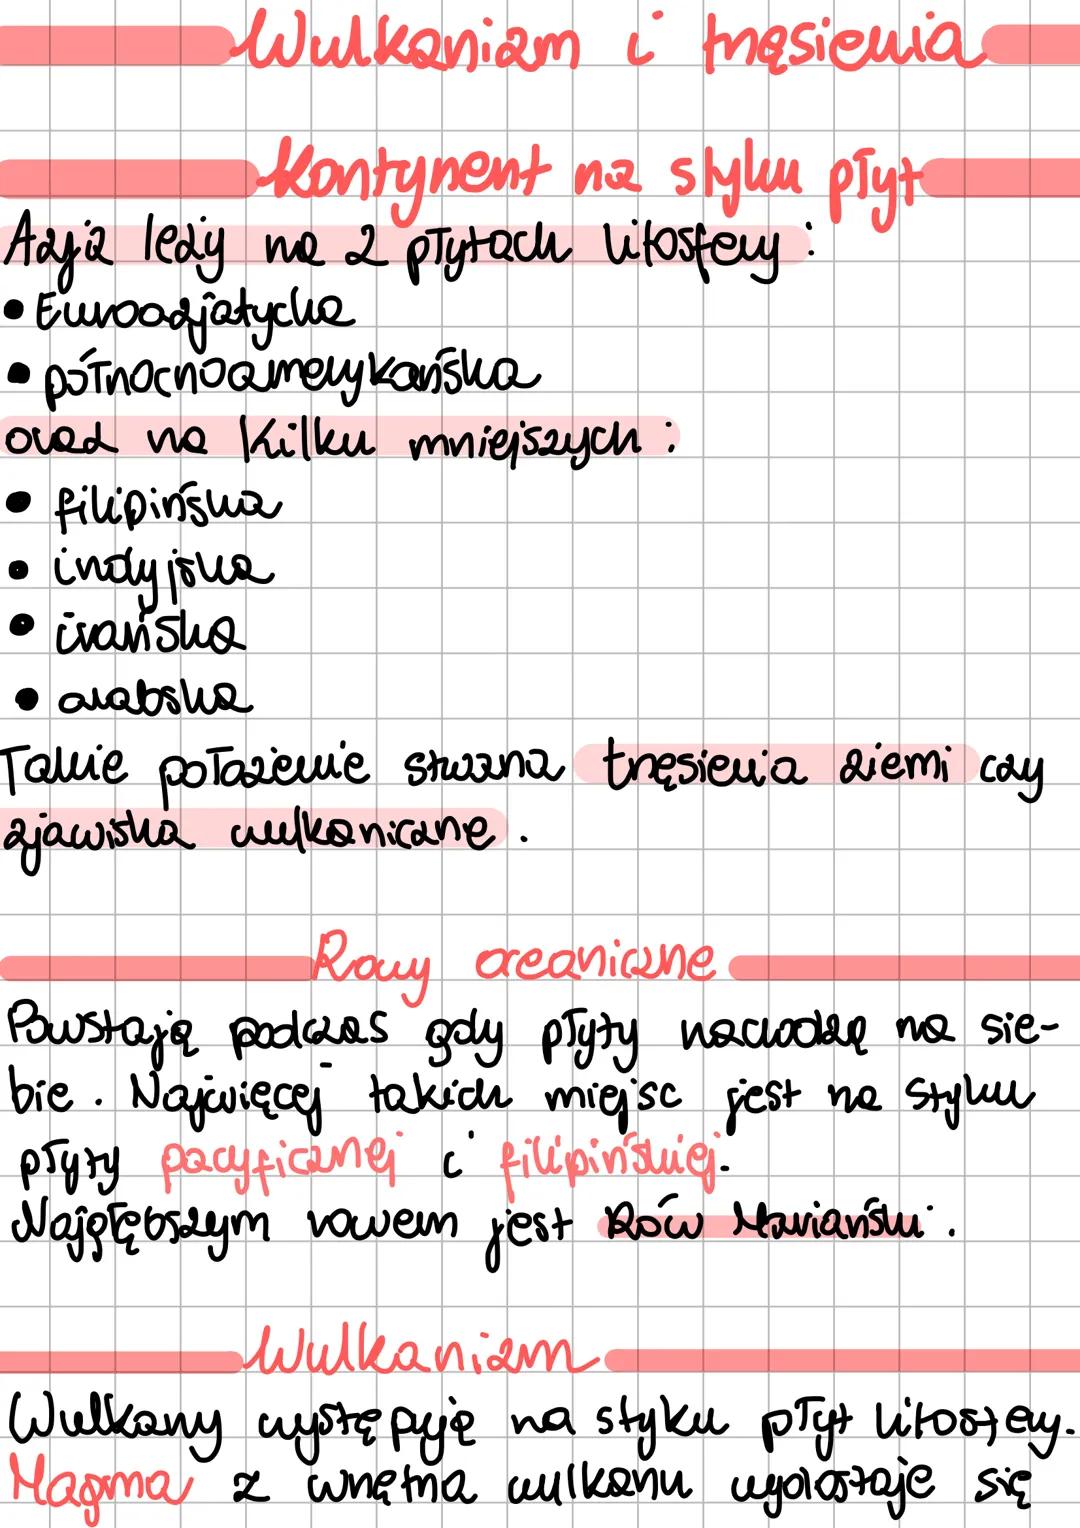 Wulkanizm i trzęsienia
Kontynent na styku płyt
Azja leży na 2 płytach litosfery:
• Euroazjatycka
• północnoamerykańska
oraz na kilku mniejszych:
• filipińska
• indyjska
• irańska
• arabska
Takie położenie stwarza trzęsienia ziemi czy
zjawiska wulkaniczne.
Rowy oceaniczne
Powstają podczas gdy płyty nachodzą na sie-
bie. Najwięcej takich miejsc jest na styku
płyty pacyficznej i filipińskiej.
Najgłębszym rowem jest Rów Mariański.
Wulkanizm
Wulkany występują na styku płyt litosfery.
Magma z wnętrza wulkanu wydostaje się